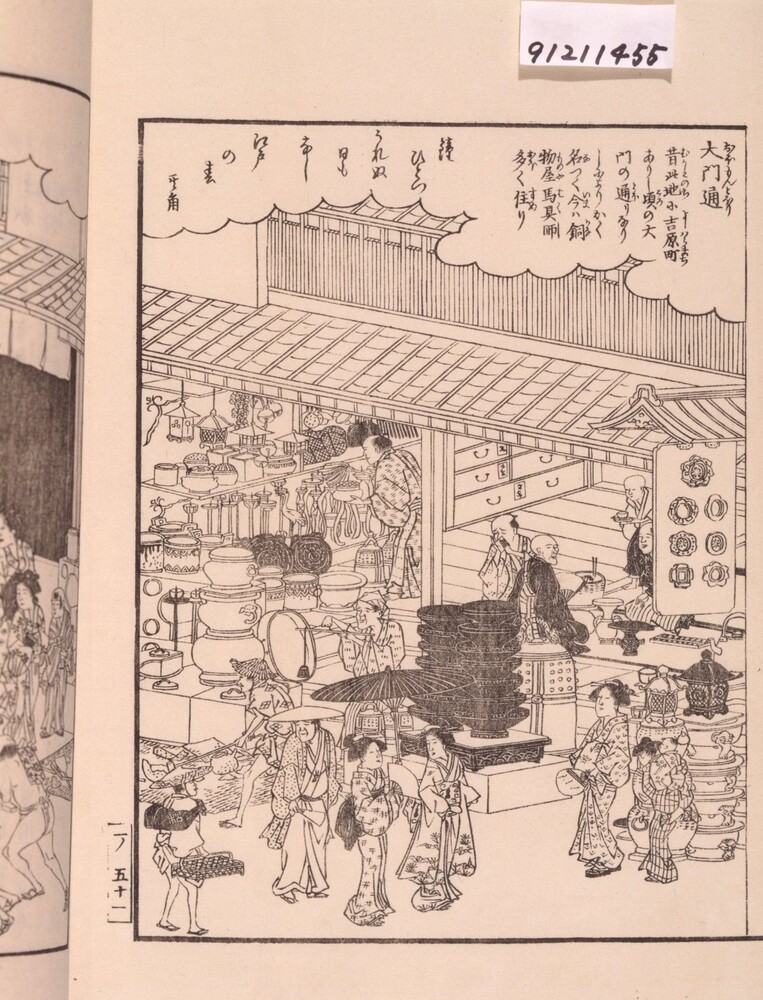 91211455
大門通
おほもんどほり
昔此地に吉原町
ありし頃の大
門の通りなり
しによりかく
名つく今ハ銅
物屋馬具師
多く住り
鐘
ひとつ
うれぬ
日も
なし
江戸
の
春
其角
一ノ五十一